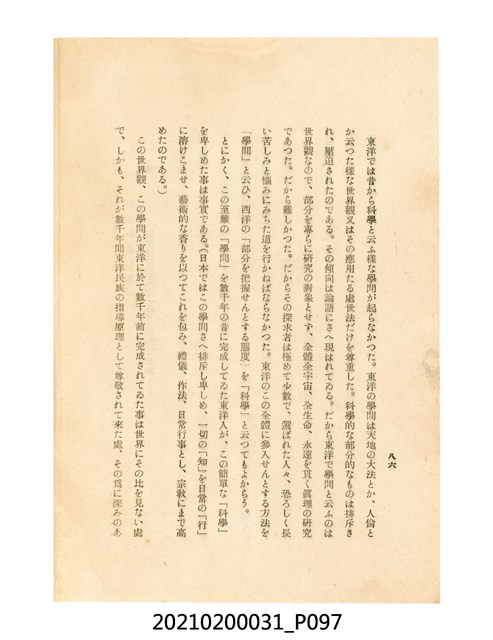 八六
東洋では昔から科學と云ふ樣な學問が起らなかつた。東洋の學問は天地の大法とか、人倫と
か云つた樣な世界觀又はその應用たる處世法だけを尊重した。科學的な部分的なものは排斥さ
れ、壓迫されたのである。その傾向は論語にさへ現はれてゐる。だから東洋で學問と云ふのは
世界觀なので、部分を專らに研究の對象とせず、全體全宇宙、全生命、永遠を貫く眞理の研究
であつた。だから難しかつた。だからその探求者は極めて少數で、選ばれた人々、恐ろしく長
い苦しみと惱みにみちた道を行かねばならなかつた。東洋のこの全體に參入せんとする方法を
「學問」と云ひ、西洋の「部分を把握せんとする態度」を「科學」と云つてもよからう。
とにかく、この至難の「學問」を數千年の昔に完成してゐた東洋人が、この簡單な「科學」
を卑しめた事は事實である。(日本ではこの學問さへ排斥し卑しめ、一切の「知」を日常の「行」
に溶けこませ、藝術的な香りを以つてこれを包み、禮儀、作法、日常行事とし、宗敎にまで高
めたのである。)
この世界觀、この學問が東洋に於て數千年前に完成されてゐた事は世界にその比を見ない處
で、しかも、それが數千年間東洋民族の指導原理として尊敬されて來た處、その爲に深みのあ
20210200031_P097